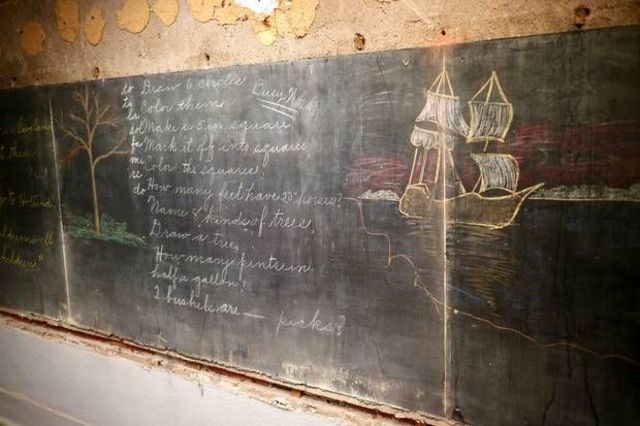 do Draw 6 circles Busy Work
ti Color them.
la
sol Make a 5 in square
fa Mark it off into squares
mi Color the square.
re
do How many feet have 25 horses?
Name 8 kinds of trees.
Draw a tree.
How many pints in
half a gallon?
2 bushels are — pecks?
to Holland